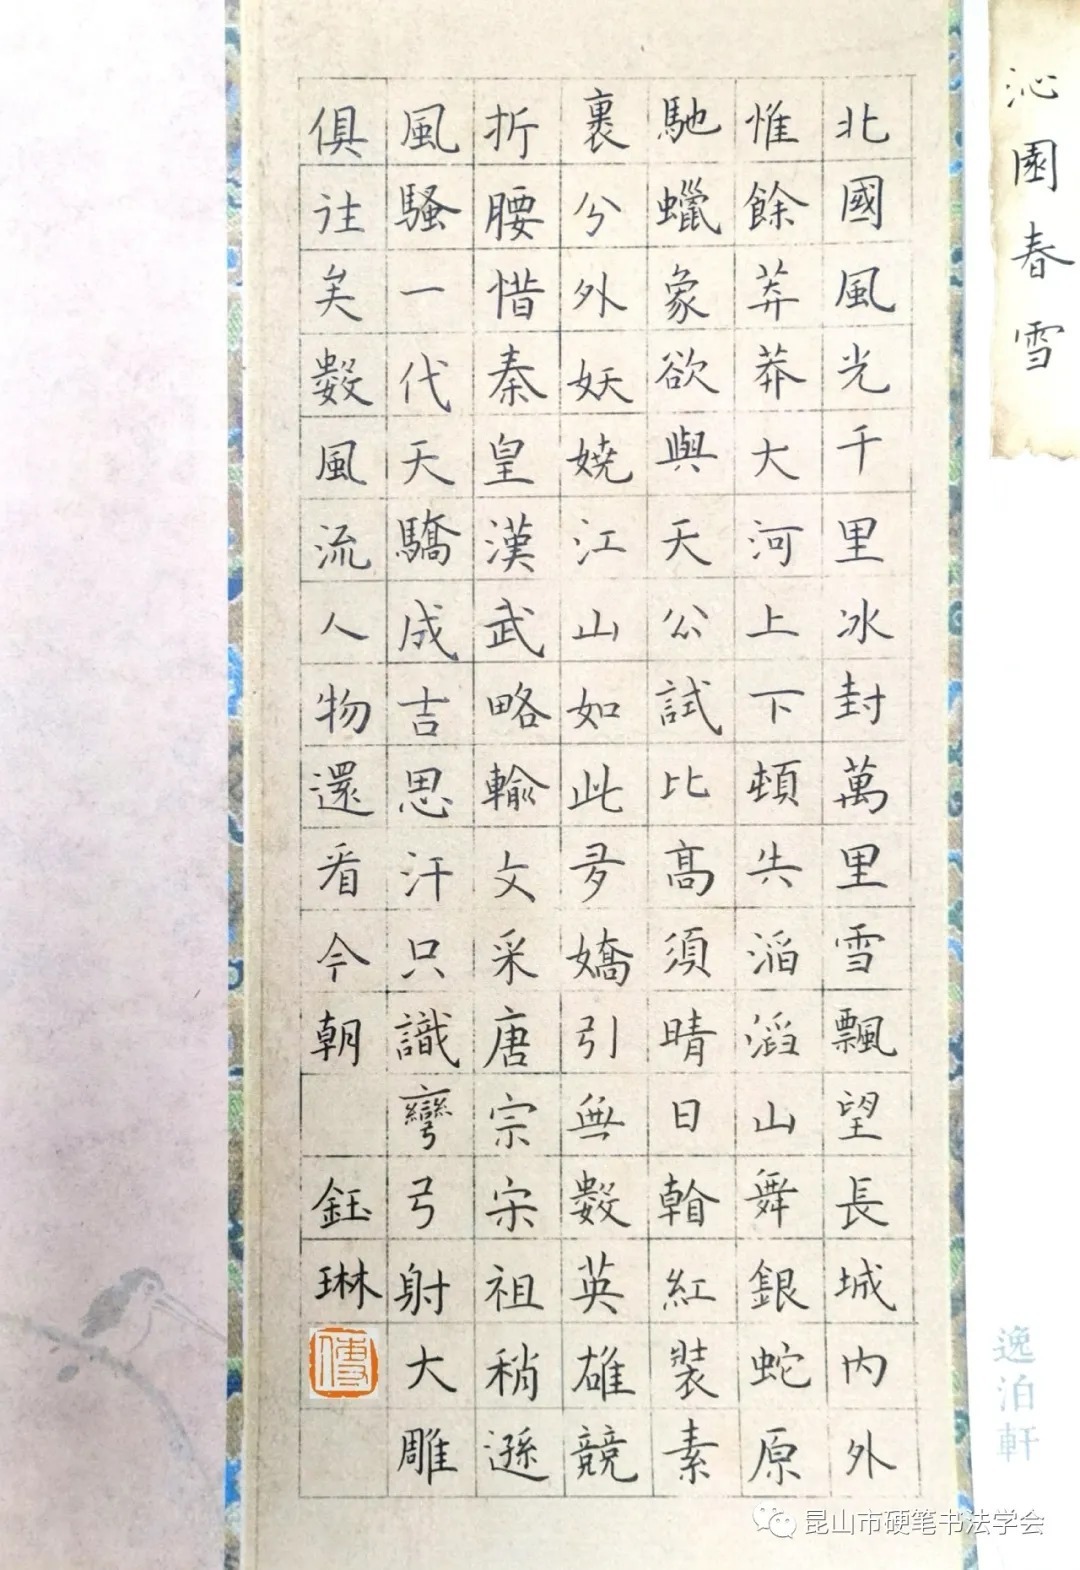 沁園春雪
北國風光千里冰封萬里雪飄望長城內外
惟餘莽莽大河上下頓失滔滔山舞銀蛇原
馳蠟象欲與天公試比高須晴日看紅裝素
裹分外妖嬈江山如此多嬌引無數英雄競
折腰惜秦皇漢武略輸文采唐宗宋祖稍遜
風騷一代天驕成吉思汗只識彎弓射大雕
俱往矣數風流人物還看今朝 鈺琳
逸泊軒
昆山市硬笔书法学会